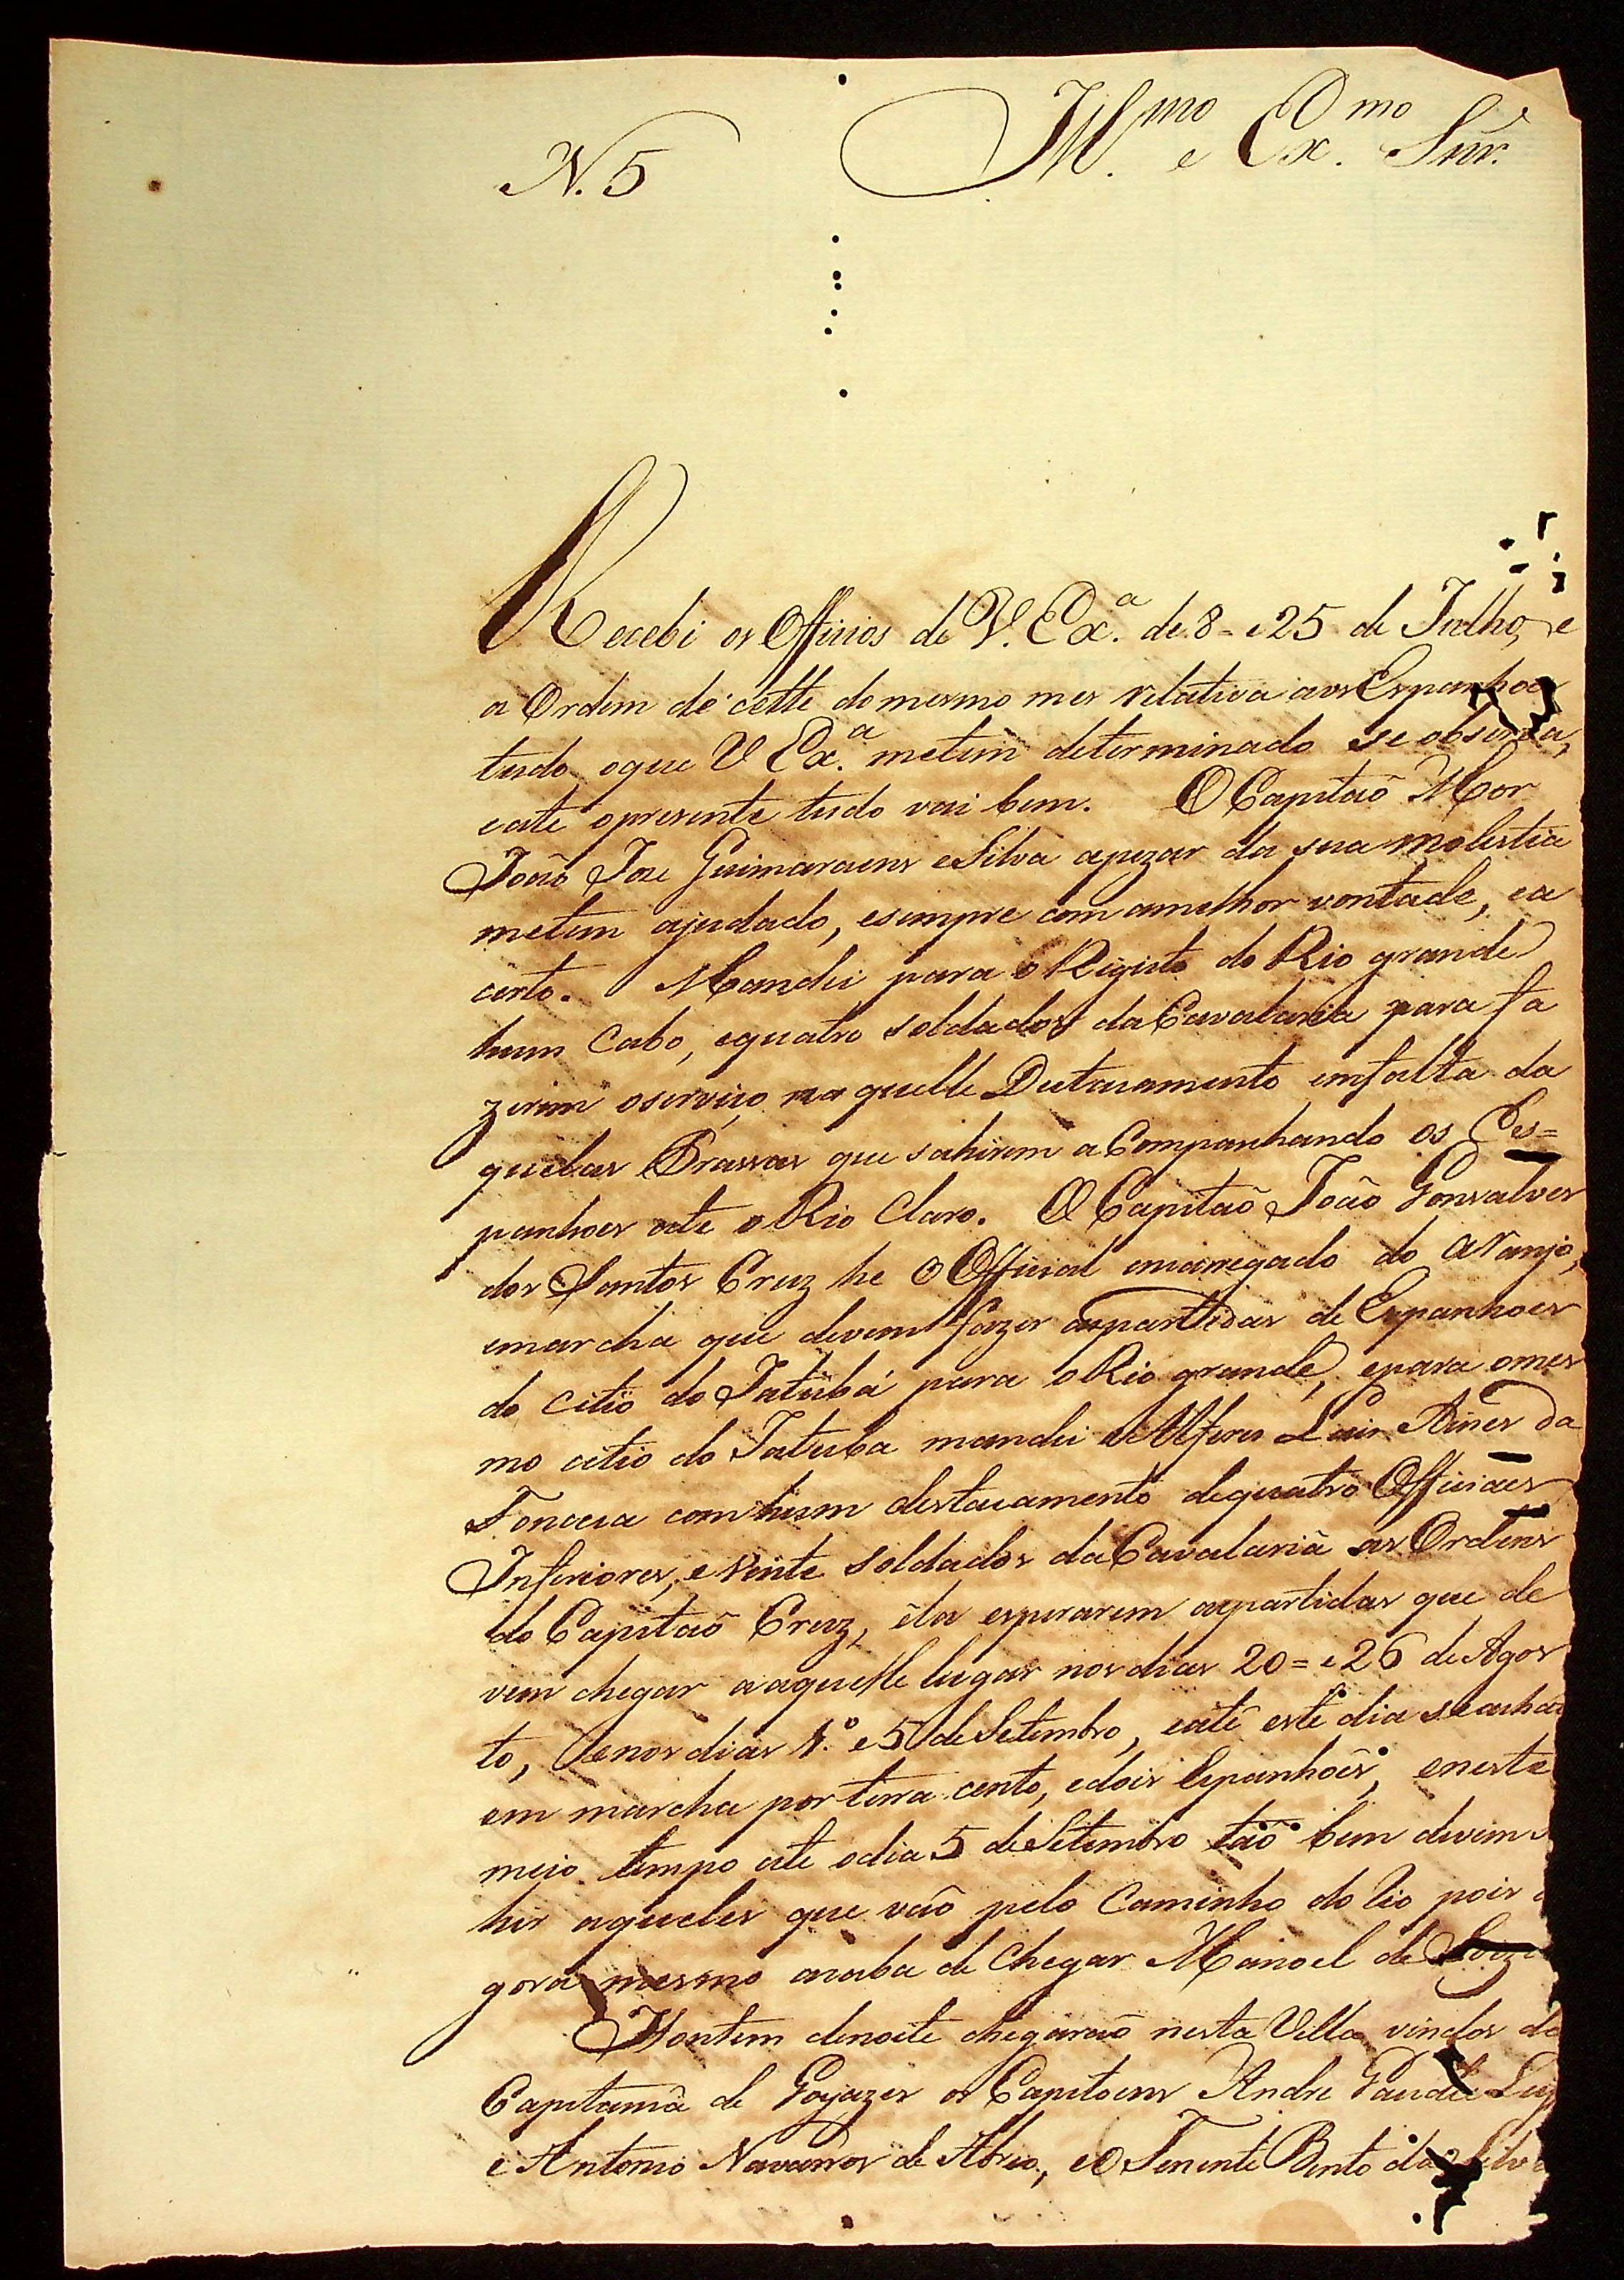 N. 5 Ill.mo e Ex.mo Snr.
Recebi os Officios de V. Ex.a de 8 = e 25 de Julho, e
a Ordem de cette do mesmo mes relativa aos Espanhoes
tudo oque V Ex.a metem determinado se observa,
eate opresente tudo vai bem. O Capitaõ Mor
Joaõ Joze Guimaraens eSilva apezar da sua molestia
metem ajudado, esempre com amelhor vontade, ea
certo. Mandei para o Registo do Rio grande
hum Cabo, equatro soldados da Cavalaria para fa
zerem oserviço naquelle Destacamento emfalta da
quelas Prassas que sahirem aCompanhando os Es=
panhoes ate o Rio Claro. O Capitaõ Joaõ Gonsalves
dos Santos Cruz he o Official emcarregado do aranjo,
emarcha que devem fazer as partidas de Espanhoes
do citio do Jatubá para o Rio grande, epara omes
mo citio do Jatuba mandei o Alferes Luis da
Fonceca com hum destacamento dequatro Officiaes
Inferiores, e vinte soldados da Cavalaria as Ordens
do Capitaõ Cruz, ela esperarem as partidas que de
vem chegar aaquelle lugar nos dias 20 = e 26 de Agos
to, enos dias 1.o e 5 de Setembro, eatê este dia seacha
em marcha por terra cento, edois Espanhoes, eneste
meio tempo ate odia 5 de Setembro taõ bem devem
hir aqueles que vaõ pelo Caminho do Rio pois a
gora mesmo acaba de Chegar Manoel de
Hontem denoite chegaraõ nesta Villa vindos da
Capitania de Goyazes os Capitoens Andre Gaudie
e Antonio Navarros de Abreo, eo Tenente Bento da Silva